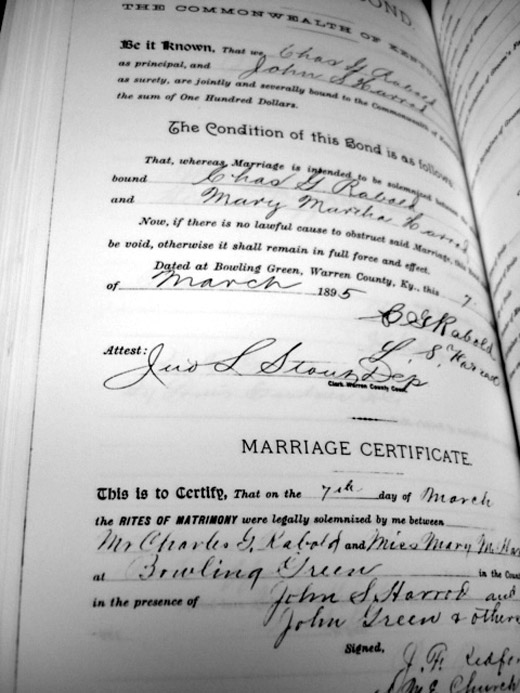 BOND.
THE COMMONWEALTH OF
Be it Known, That we, Chas G Rabold
as principal, and John S Harrod
as surety, are jointly and severally bound to the Commonwealth of
the sum of One Hundred Dollars.
The Condition of this Bond is as follows:
That, whereas, Marriage is intended to be solemnized between the
bound Chas G Rabold
and Mary Martha Harrod
Now, if there is no lawful cause to obstruct said Marriage, this
be void, otherwise it shall remain in full force and effect.
Dated at Bowling Green, Warren County, Ky., this 7
of March 1895
C G Rabold
Attest: J. S. Harrod
Jno L Stout Dep
Clerk Warren County Court.
MARRIAGE CERTIFICATE.
This is to Certify, That on the 7th day of March
the RITES OF MATRIMONY were legally solemnized by me between
Mr Charles G. Rabold and Miss Mary M. Har
at Bowling Green in the Coun
in the presence of John S. Harrod and
John Green & others
Signed,
J. F.
M E Church